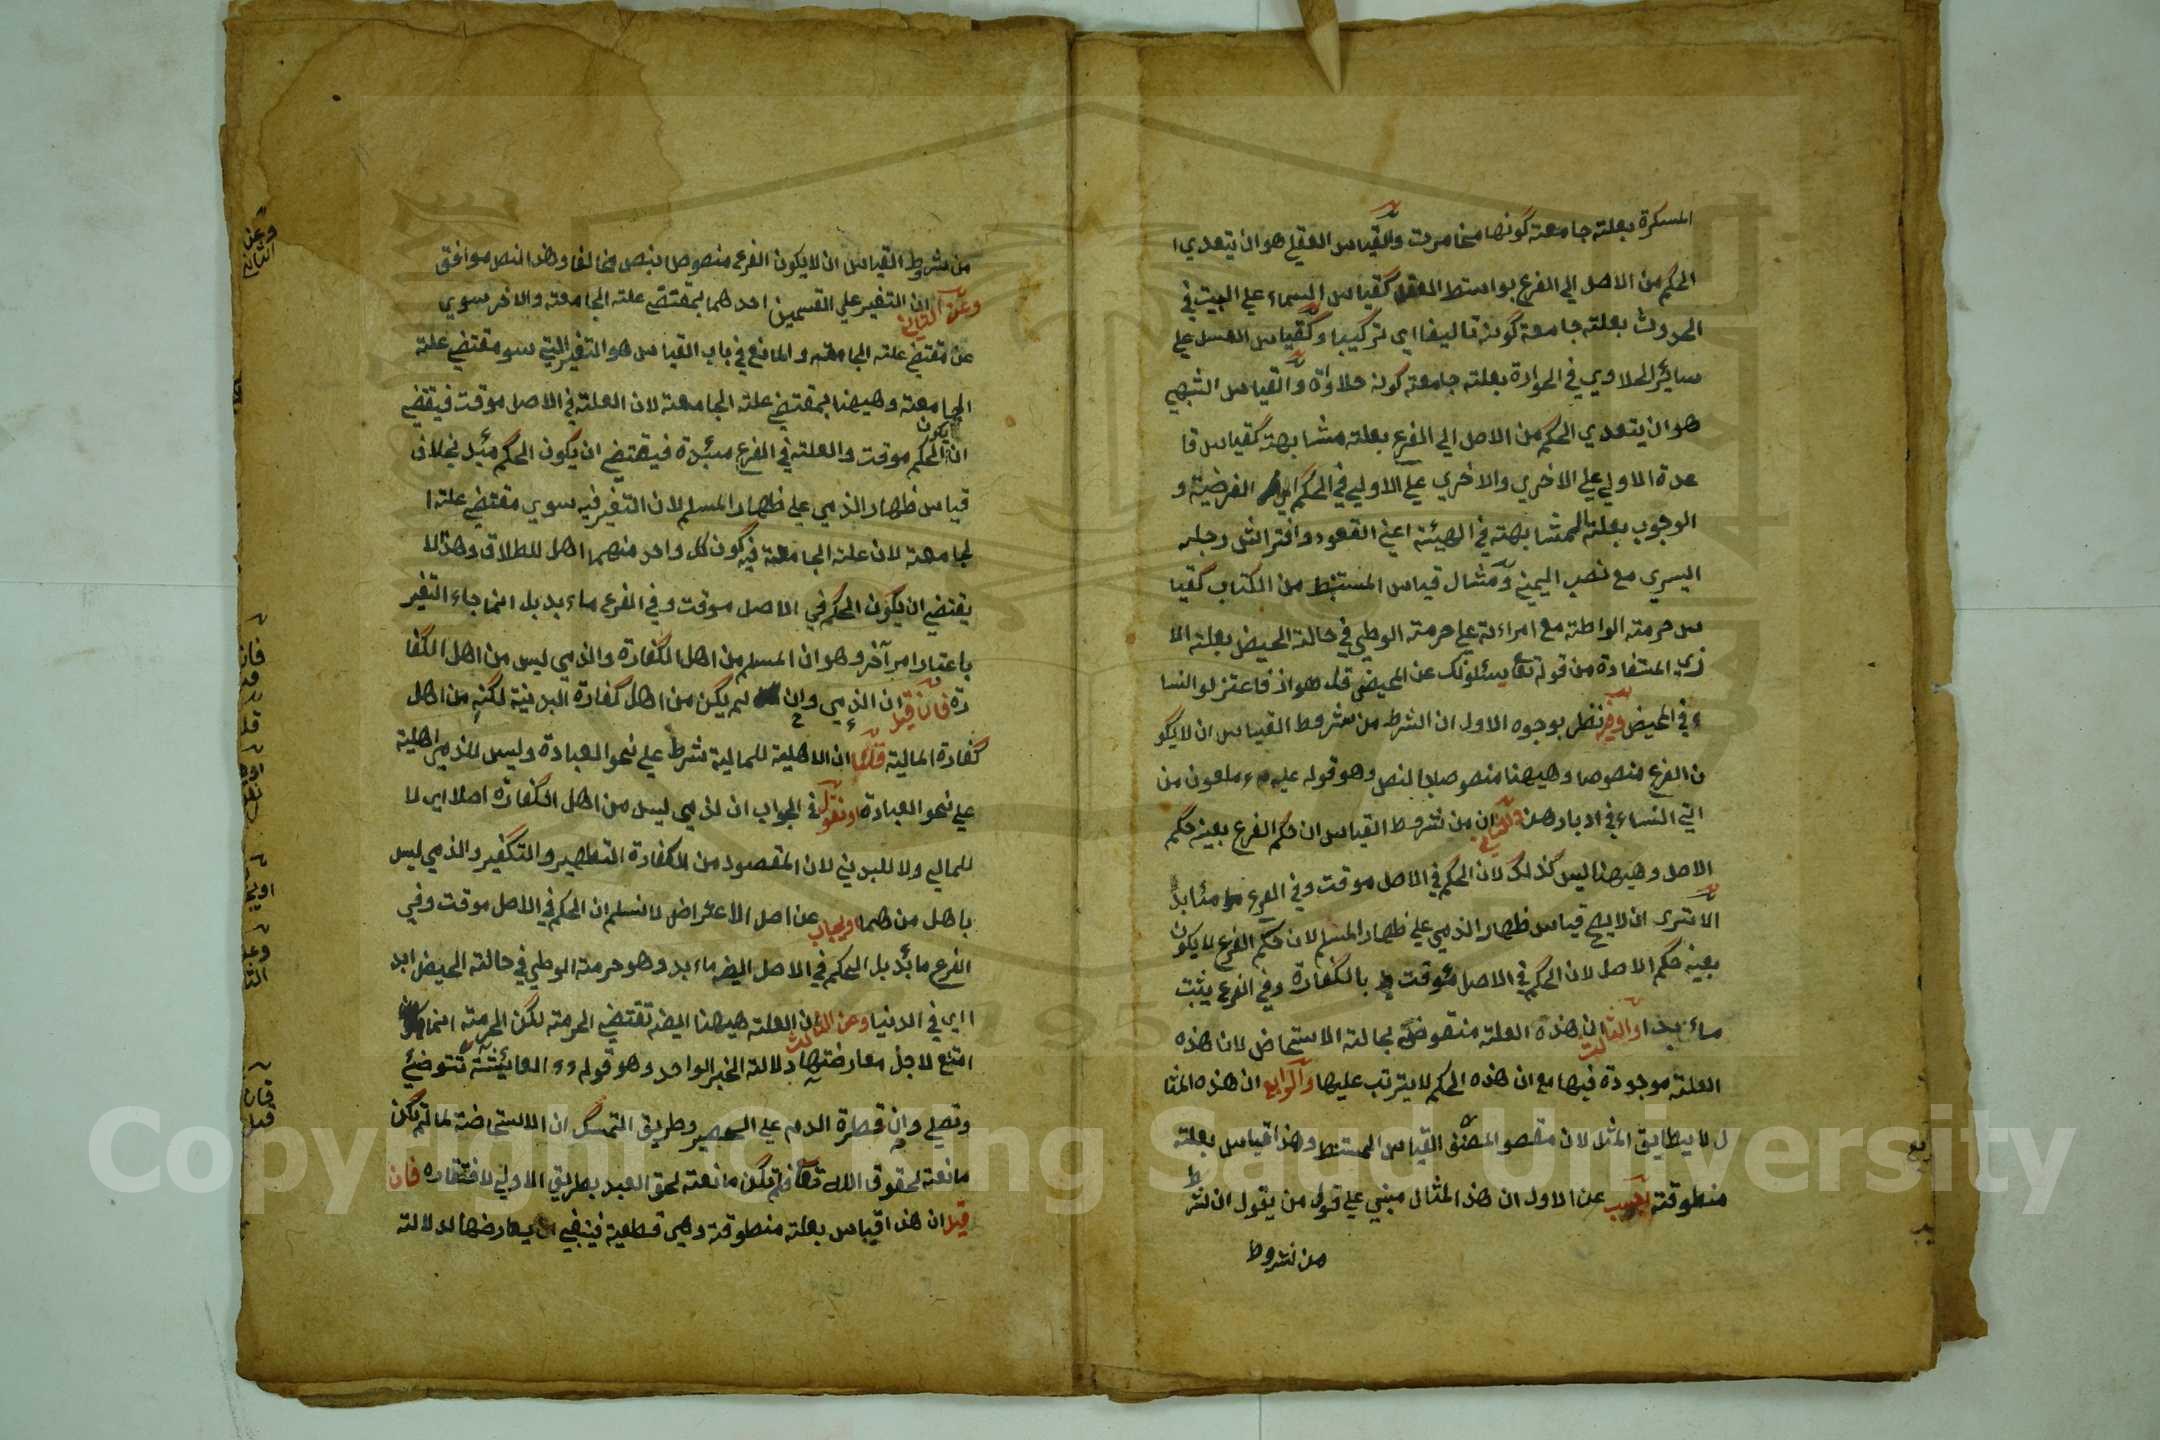 المسكرة بعلته جامعة كونها مخامرت والقياس العقلي هو ان يتعدي ا
الحكم من الاصل الي الفرع بواسطة العقل كقياس السماء علي البيت في
الحدوث بعلته جامعة كونه تاليفا اي تركيبا وكقياس العسل علي
سائر الحلاوي في الحرارة بعلته جامعة كونه حلاوة والقياس الشبهي
هو ان يتعدي الحكم من الاصل الي الفرع بعلته مشابهة كقياس قا
عدة الاولي علي الاخري والاخري علي الاولي في الحكم اي الفرضية و
الوجوب بعلته المشابهته في الهيئة اعني القعود وافتراش رجله
اليسري مع نصب اليمني ومثال قياس المستنبط من الكتاب كقيا
س حرمته الواطة مع امراءته علي حرمته الوطي في حالة الحيض بعلته الا
ذي المستفادة من قوله تع يسئلونك عن المحيض قل هو اذ فاعتزلوا النسا
ء في المحيض وفيه نظر بوجوه الاول ان الشرط من شروط القياس ان لا يكو
ن الفرع منصوصا وهيهنا منصوصا بالنص وهو قوله عليه ملعون من
اتي النساء في ادبارهن والثاني ان من شروط القياس ان حكم الفرع بعينه حكم
الاصل وهيهنا ليس كذلك لان الحكم في الاصل موقت وفي الفرع مئابد
الا ترى ان لا يصح قياس ظهار الذمي علي ظهار المسلم لان حكم الفرع لا يكون
بعينه حكم الاصل لان الحكم في الاصل مئوقت بالكفارة وفي الفرع يثبت
ماءبدا والثالث ان هذه العلته منقوضة بحالة الاستحاض لان هذه
العلته موجودة فيها مع ان هذه الحكم لا يترتب عليها والرابع ان هذه المثا
ل لا يطابق المثل لان مقصو المصنف القياس المستنبط وهذا قياس بعلته
منطوقته يجب عن الاول ان هذ المثال مبني علي قول من يقول ان لشر
من شروط
من شروط القياس ان لا يكون الفرع منصوص بنص مخالفا وهذ النص موافق
وعن الثاني ان التغير علي القسمين احدهما بمقتضي علته الجامعة والاخر سوي
عن مقتضي علته الجامعة والمانع في باب القياس هو التغير التي سو مقتضي علته
الجامعة وهيهنا بمقتضي علته الجامعة لان العلته في الاصل موقت فيقتضي
ان يكون الحكم موقت والعلته في الفرع مئبدة فيقتضي ان يكون الحكم مئبد بخلاف
قياس ظهار الذمي علي ظهار المسلم لان التغير فيه سوي مقتضي علته ا
لجامعة لان علته الجامعة فيه كون كل واحد منهما اهل للطلاق وهذ لا
يقتضي ان يكون الحكم في الاصل موقت وفي الفرع ماءبد بل انما جاء التغير
باعتبار امر آخر وهو ان المسلم من اهل الكفارة والذمي ليس من اهل الكفا
رة فان قيل ان الذمي وان لم يكن من اهل كفارة البدنية لكنه من اهل
كفارة المالية قلنا ان الاهلية للمالية شرط علي نحو العبادة وليس للذمي اهلية
علي نحو العبادة او نقول في الجواب ان لذمي ليس من اهل الكفارة اصلا اي لا
للمالي ولا للبدني لان المقصود من الكفارة التطهير والتكفير والذمي ليس
باهل من هما او يجاب عن اصل الاعتراض لا نسلم ان الحكم في الاصل موقت وفي
الفرع مائبد بل الحكم في الاصل ايضا ماءبد وهو حرمته الوطي في حالته الحيض ابد
ا اي في الدنيا وعن الثالث ان العلته هيهنا ايضه تقتضي الحرمته لكن الحرمته انما
امتنع لاجل معارضتها دلالة الخبر الواحد وهو قوله تتوضئ
وتصلي وان قطرة الدم علي الحصير وطريق التمسك ان الاستحاضة لما لم يكن
مانعة لحقوق الله تعا فلم تكن مانعته لحق العبد بطريق الاولي لافتقاره فان
قيل ان هذا قياس بعلته منطوقة وهي قطعية فينبغي ان يعارضها لدلالته
وعن
الثاني
فان
قلنا
او نقول
وعن
فان
قيل